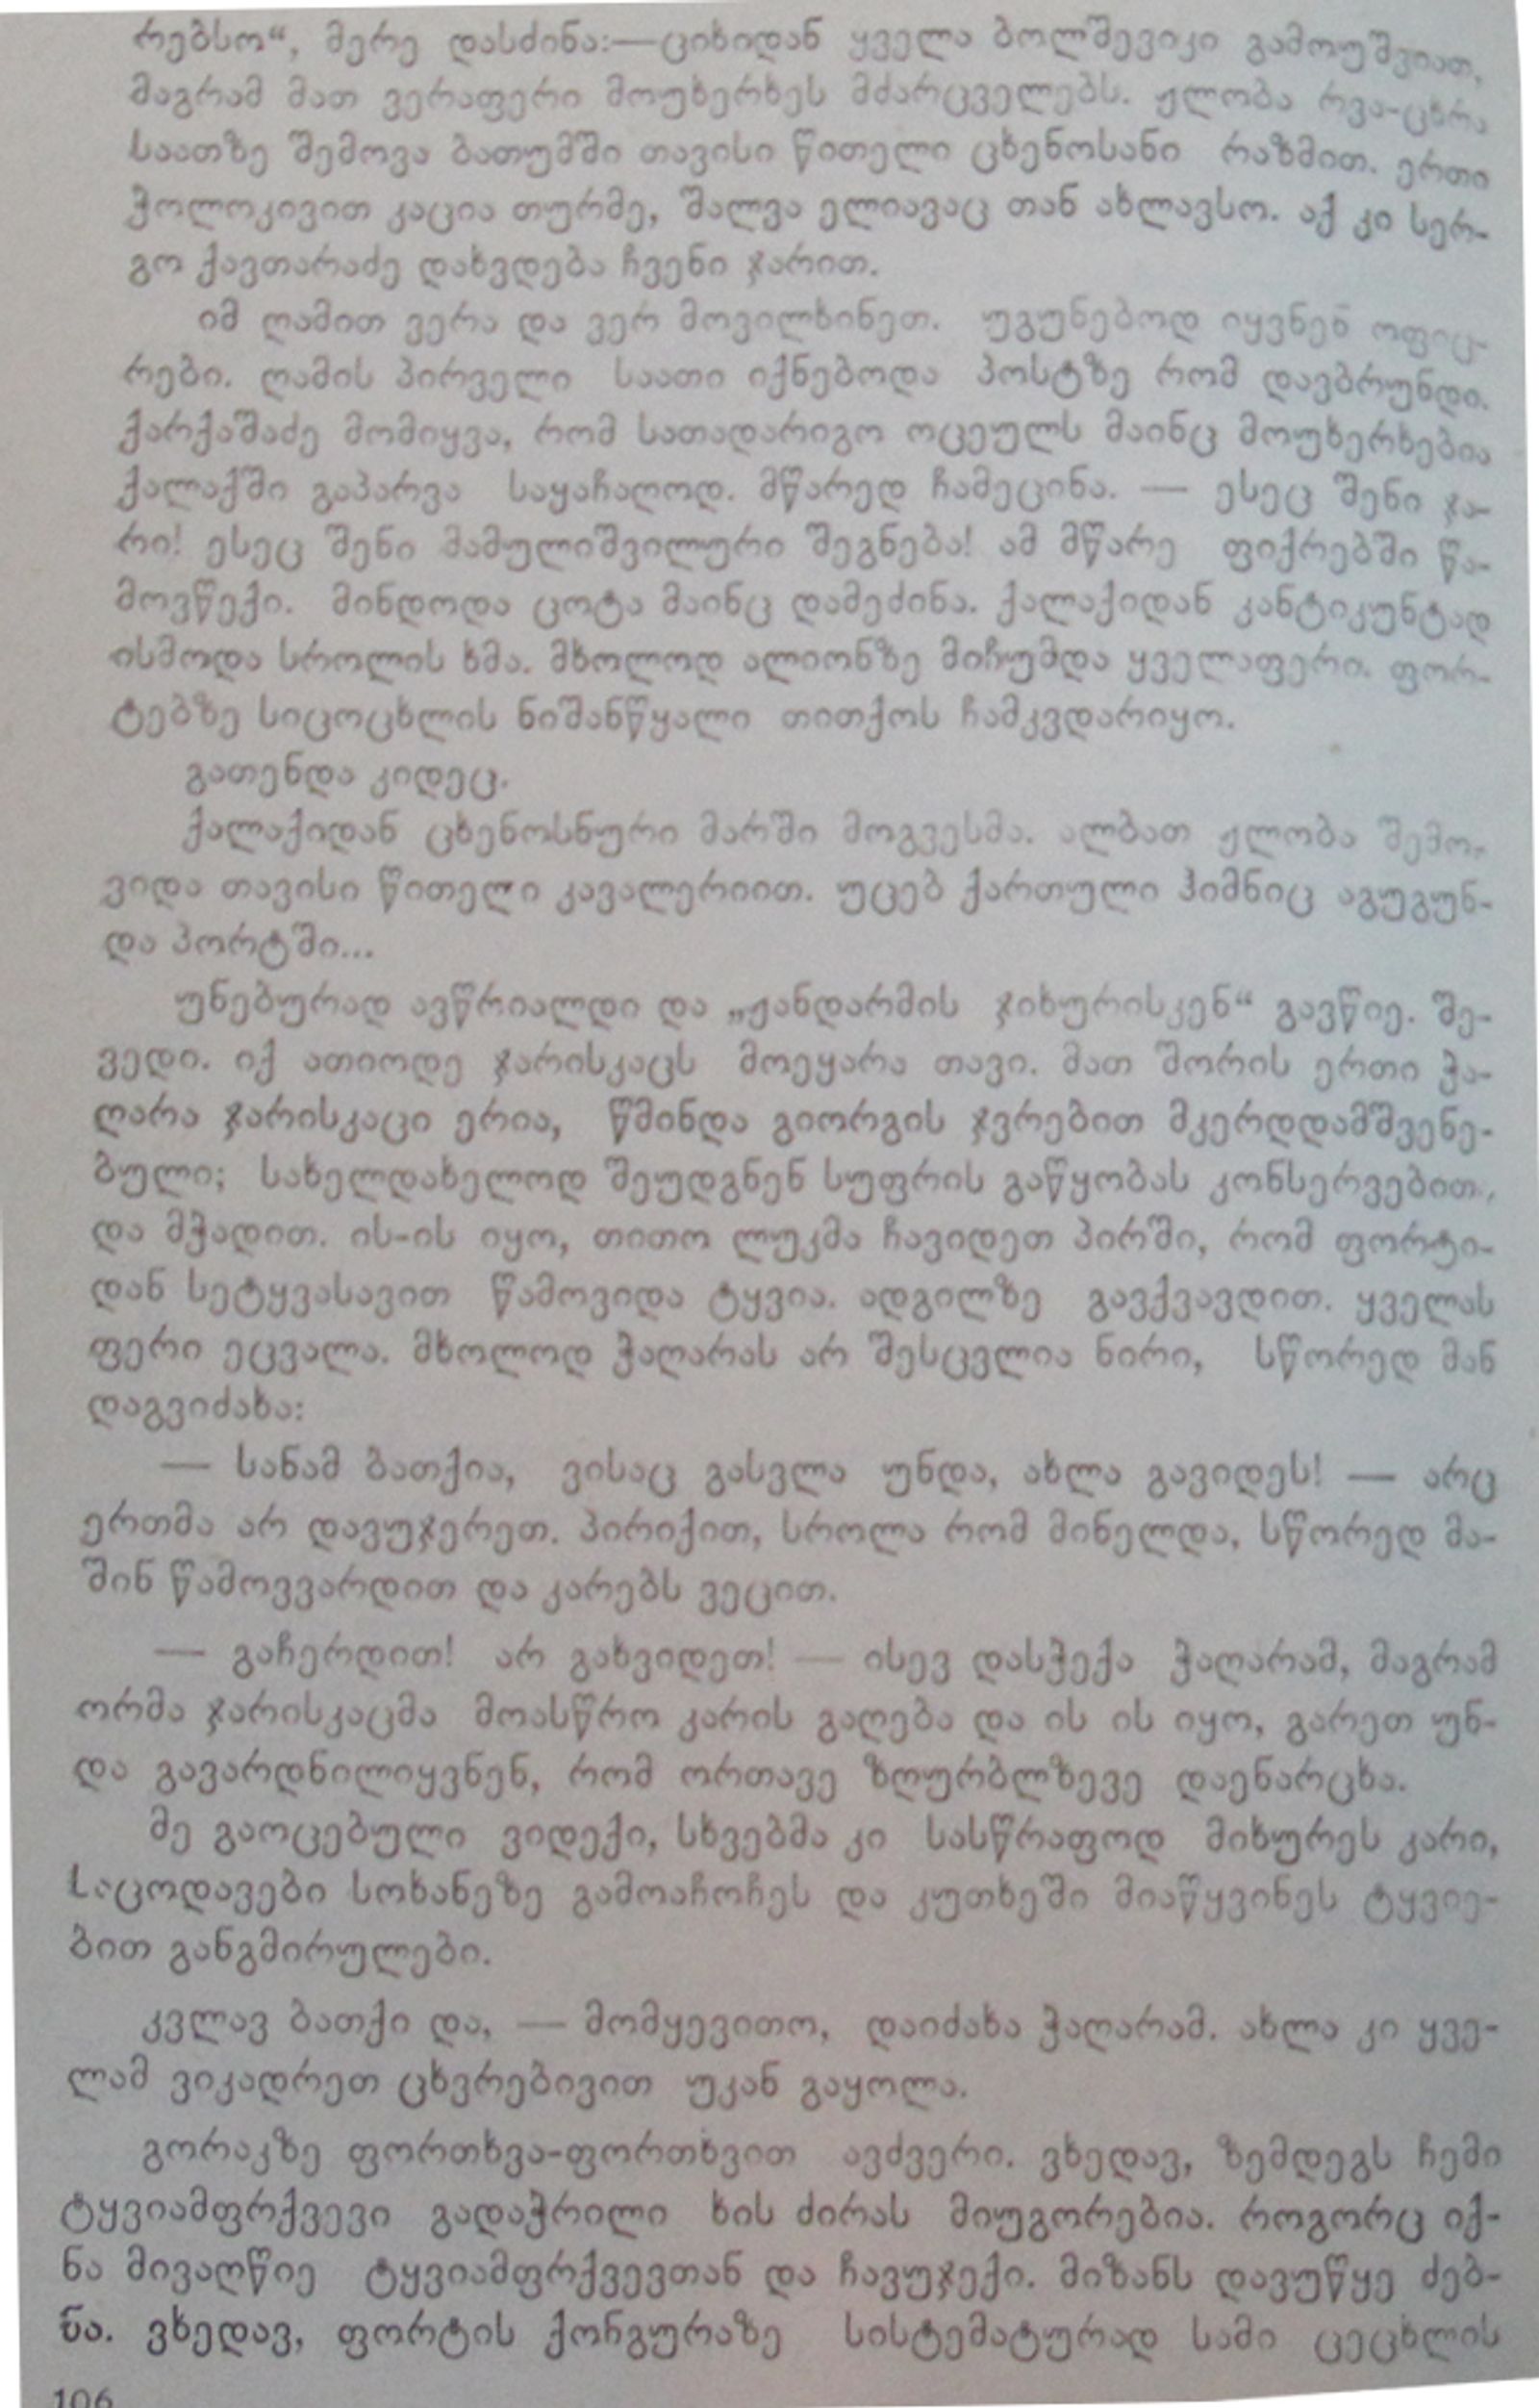 რებსო“, მერე დასძინა:—ციხიდან ყველა ბოლშევიკი გამოუშვიათ,
მაგრამ მათ ვერაფერი მოუხერხეს მძარცველებს. ჟლობა რვა-ცხრა
საათზე შემოვა ბათუმში თავისი წითელი ცხენოსანი რაზმით. ერთი
ჭოლოკივით კაცია თურმე, შალვა ელიავაც თან ახლავსო. აქ კი სერ-
გო ქავთარაძე დახვდება ჩვენი ჯარით.
იმ ღამით ვერა და ვერ მოვილხინეთ. უგუნებოდ იყვნენ ოფიც-
რები. ღამის პირველი საათი იქნებოდა პოსტზე რომ დავბრუნდი.
ქარქაშაძე მომიყვა, რომ სათადარიგო ოცეულს მაინც მოუხერხებია
ქალაქში გაპარვა საყაჩაღოდ. მწარედ ჩამეცინა. — ესეც შენი ჯა-
რი! ესეც შენი მამულიშვილური შეგნება! ამ მწარე ფიქრებში წა-
მოვწექი. მინდოდა ცოტა მაინც დამეძინა. ქალაქიდან კანტიკუნტად
ისმოდა სროლის ხმა. მხოლოდ ალიონზე მიჩუმდა ყველაფერი. ფორ-
ტებზე სიცოცხლის ნიშანწყალი თითქოს ჩამკვდარიყო.
გათენდა კიდეც.
ქალაქიდან ცხენოსნური მარში მოგვესმა. ალბათ ჟლობა შემო-
ვიდა თავისი წითელი კავალერიით. უცებ ქართული ჰიმნიც აგუგუნ-
და პორტში...
უნებურად ავწრიალდი და „ჟანდარმის ჯიხურისკენ“ გავწიე. შე-
ვედი. იქ ათიოდე ჯარისკაცს მოეყარა თავი. მათ შორის ერთი ჭა-
ღარა ჯარისკაცი ერია, წმინდა გიორგის ჯვრებით მკერდდამშვენე-
ბული; სახელდახელოდ შეუდგნენ სუფრის გაწყობას კონსერვებით
და მჭადით. ის-ის იყო, თითო ლუკმა ჩავიდეთ პირში, რომ ფორტი-
დან სეტყვასავით წამოვიდა ტყვია. ადგილზე გავქვავდით. ყველას
ფერი ეცვალა. მხოლოდ ჭაღარას არ შესცვლია ნირი, სწორედ მან
დაგვიძახა:
— სანამ ბათქია, ვისაც გასვლა უნდა, ახლა გავიდეს! — არც
ერთმა არ დავუჯერეთ. პირიქით, სროლა რომ მინელდა, სწორედ მა-
შინ წამოვვარდით და კარებს ვეცით.
— გაჩერდით! არ გახვიდეთ! — ისევ დასჭექა ჭაღარამ, მაგრამ
ორმა ჯარისკაცმა მოასწრო კარის გაღება და ის ის იყო, გარეთ უნ-
და გავარდნილიყვნენ, რომ ორთავე ზღურბლზევე დაენარცხა.
მე გაოცებული ვიდექი, სხვებმა კი სასწრაფოდ მიხურეს კარი,
საცოდავები სოხანეზე გამოაჩოჩეს და კუთხეში მიაწყვინეს ტყვიე-
ბით განგმირულები.
კვლავ ბათქი და, — მომყევითო, დაიძახა ჭაღარამ. ახლა კი ყვე-
ლამ ვიკადრეთ ცხვრებივით უკან გაყოლა.
გორაკზე ფორთხვა-ფორთხვით ავძვერი. ვხედავ, ზემდეგს ჩემი
ტყვიამფრქვევი გადაჭრილი ხის ძირას მიუგორებია. როგორც იქ-
ნა მივაღწიე ტყვიამფრქვევთან და ჩავუჯექი. მიზანს დავუწყე ძებ-
ნა. ვხედავ, ფორტის ქონგურაზე სისტემატურად სამი ცეცხლის
106